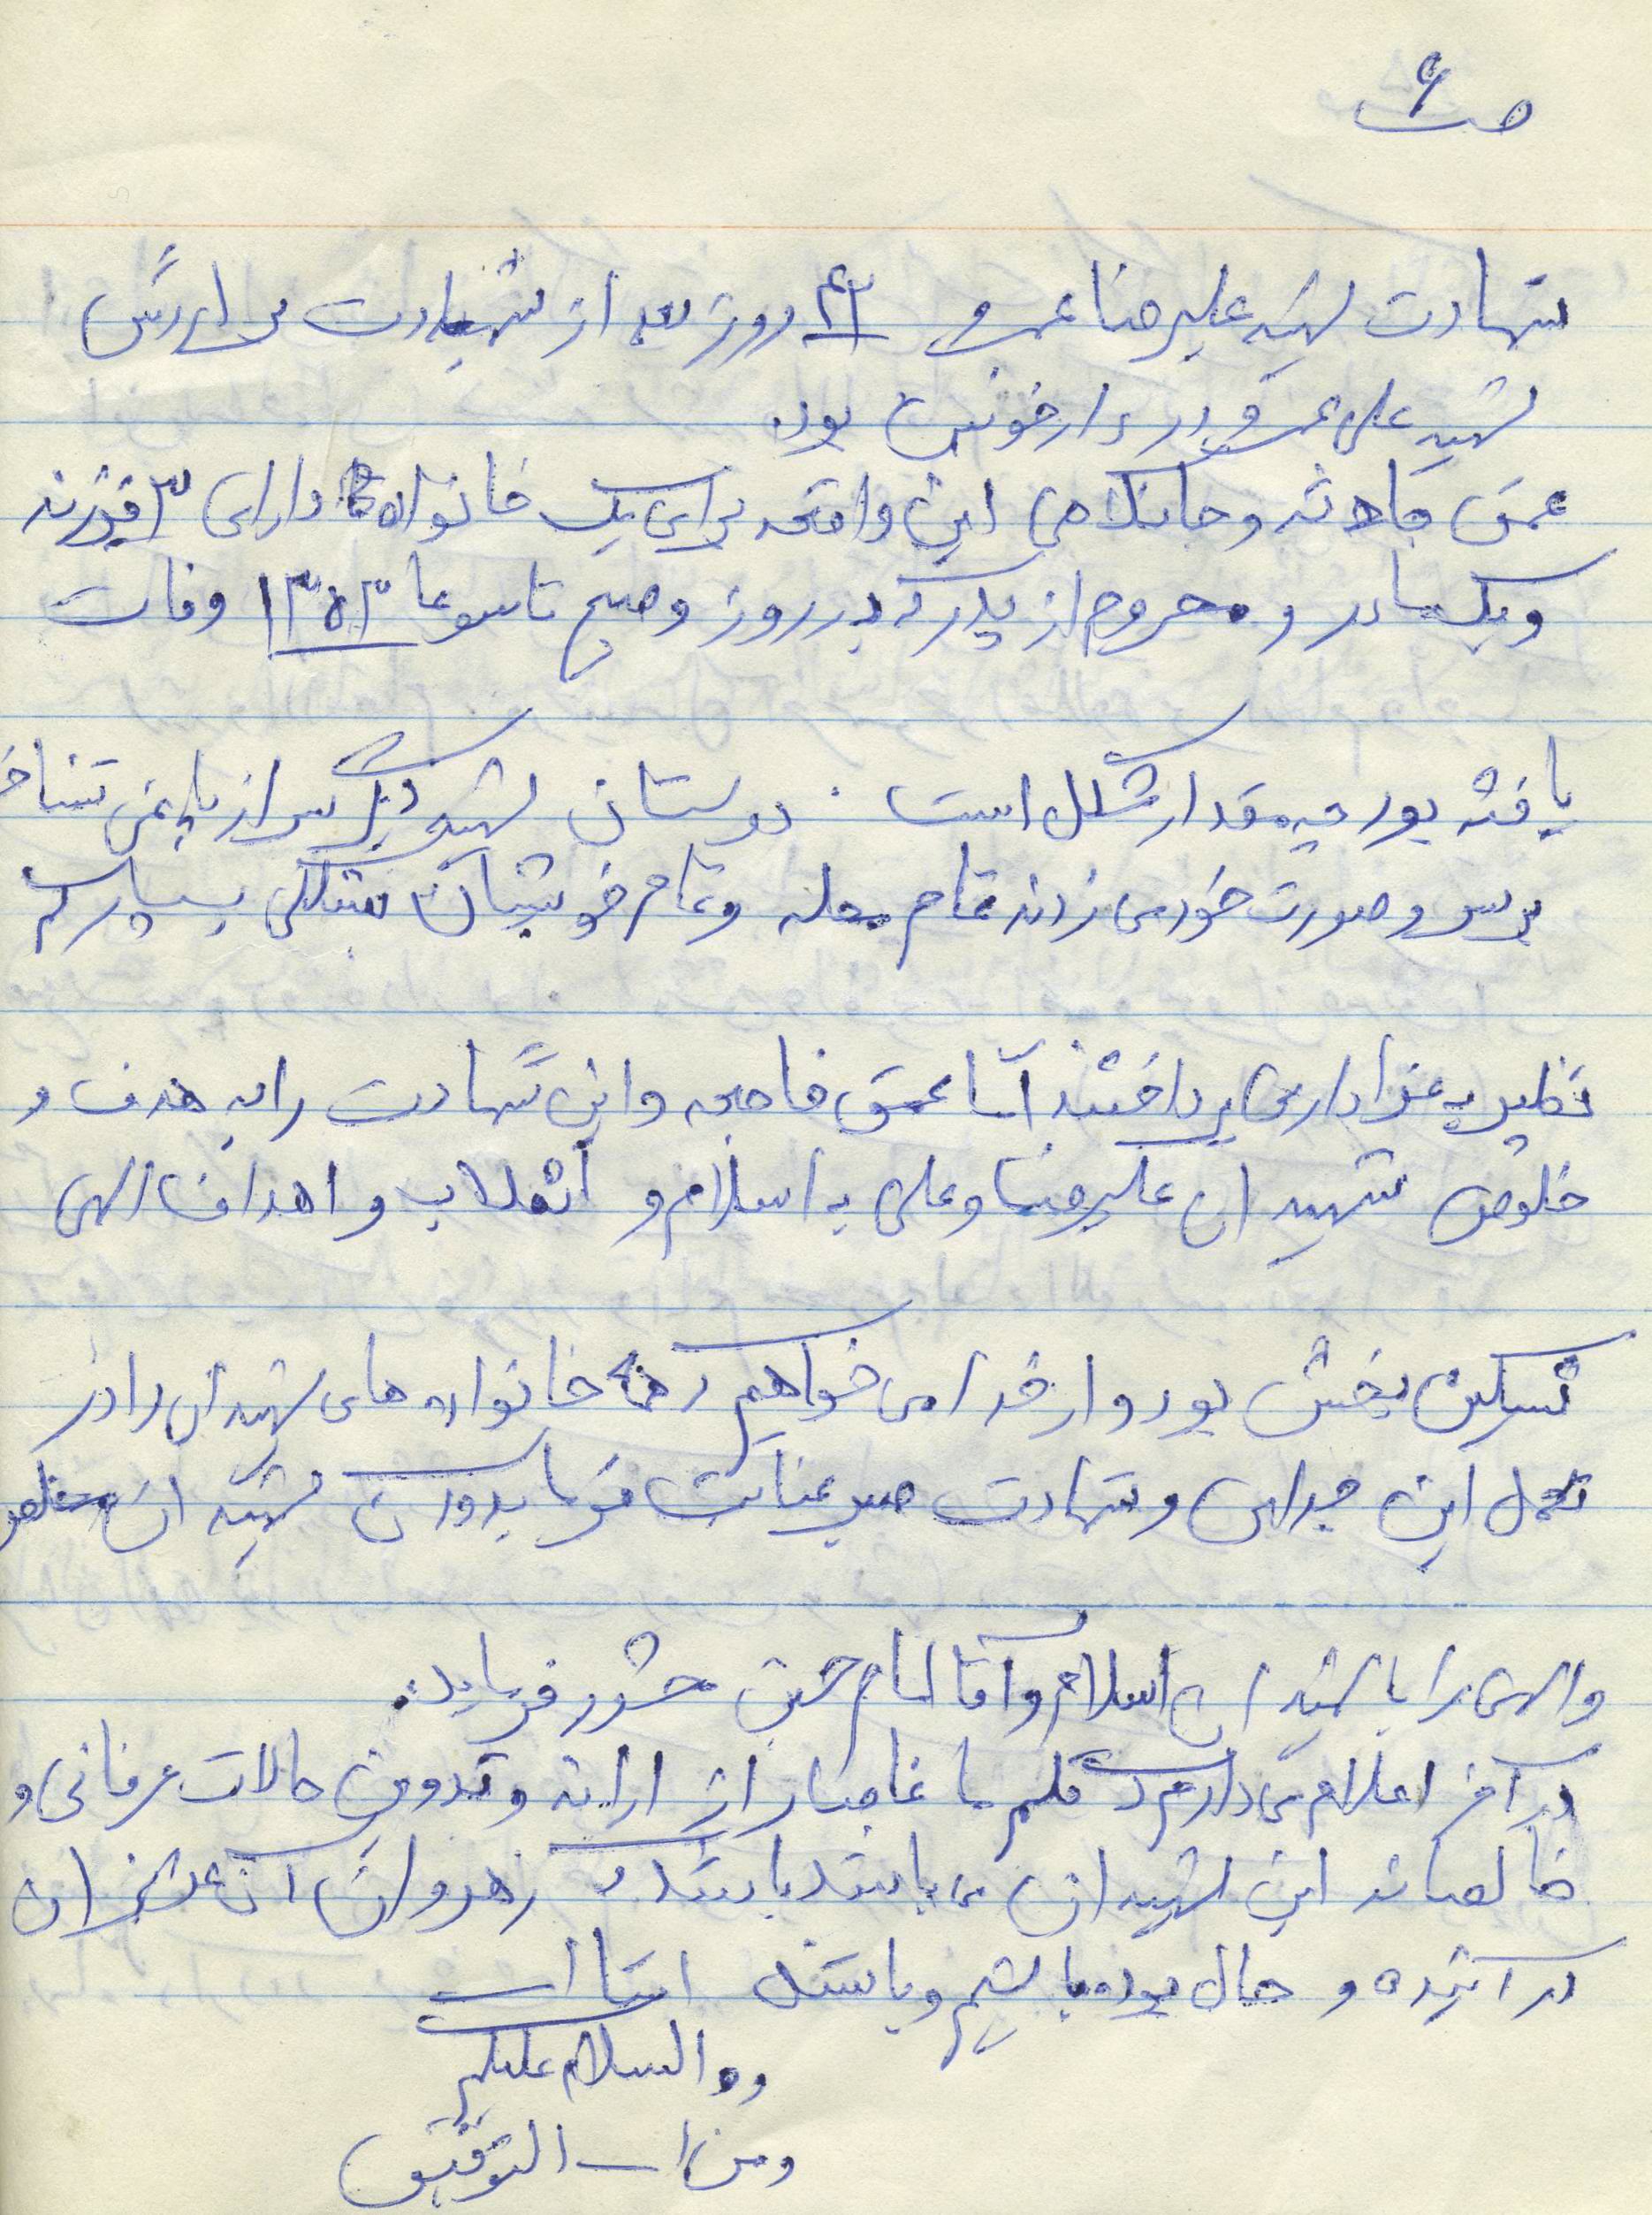 ص ۶
شهادت شهید علیرضا عمو ۴۳ روز بعد از شهادت برادرش
شهید علی عمو در دارخوئین بود.
عمق حادثه و جانکاهی این واقعه برای یک خانواده دارای ۳ فرزند
و یک مادر و محروم از پدر که در روز و صبح تاسوعا ۱۳۵۳ وفات
یافته بود چه مقدار مشکل است. دوستان شهید دیگر سر از پا نمی شناخ
بر سر و صورت خود می زدند تمام محله و تمام خویشان بشکلی بسیار کم
نظیر به عزاداری پرداختند اما عمق فاجعه و این شهادت را به هدف و
خلوص شهیدان علیرضا و علی به اسلام و انقلاب و اهداف الهی
تسکین بخش بود و از خدا می خواهیم که همه خانواده های شهیدان را در
تحمل این جدایی و شهادت صبر عنایت فرماید و شهیدان مخلص
و الهی را با شهیدان اسلام و آقا امام حسین محشور فرماید.
در آخر اعلام می دارم که قلم ما غاصبار از ارائه و تدوین حالات عرفانی و
خالصانه این شهیدان می باشد باشد که رهروان آن عزیزان
در آینده و حال بوده باشیم و باشند انشاا...
والسلام علیکم
و من ا... التوفیق